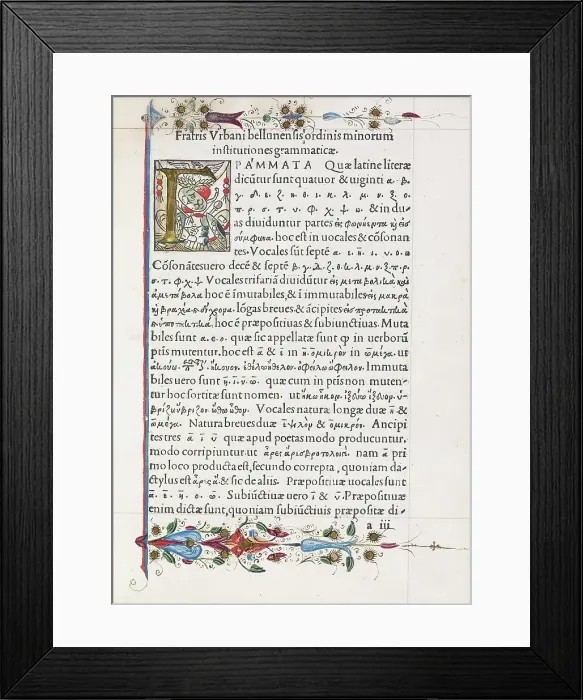 Fratris Vrbani bellunensis ordinis minorum
institutiones grammaticæ.
ΓPAMMATA Quæ latine literæ
dicũtur sunt quatuor & uiginti α. β.
γ. δ. ε. ζ. η. θ. ι. κ. λ. μ. ν. ξ. ο
π. ρ. σ. τ. υ. φ. χ. ψ. ω. & in du-
as diuiduntur partes εἰς φωνήεντα ἢ εἰς
σύμφωνα. hoc est in uocales & cõsonan
tes. Vocales sũt septẽ α. ε. η. ι. ο. υ. ω
Cõsonãtes uero decẽ & septẽ β. γ. δ. ζ. θ. κ. λ. μ. ν. ξ. π. ρ.
σ. τ. φ. χ. ψ. Vocales trifariã diuidũtur εἰς μεταβολικὰ καὶ
ἀμετάβολα hoc ẽ ĩmutabiles, & ĩ immutabiles εἰς μακρὰ
ἢ βραχέα lõgas breues & ãcipites εἰς προτακτικὰ
ὑποτακτικά, hoc ẽ præpositiuas & subiunctiuas. Muta
biles sunt α. ε. ο. quæ sic appellatæ sunt ꝙ in uerborũ
ptis mutentur. hoc est ᾱ & ε̄ in η̄. ὄμικρὸν in ὠμέγα. ut
ἀκούω. ἤκουον. ἐθέλω ἤθελον. ὀφείλω ὤφειλον. Immuta
biles uero sunt η̄. ῑ. ῡ. ω̄. quæ cum in ptis non muten-
tur hoc sortitæ sunt nomen. ut
ὑβρίζω ὕβριζον. ὠθῶ ὤθουν. Vocales natura longæ duæ η̄ &
ὠμέγα. Natura breues duæ ἒψιλὸν & ὀμικρόν. Ancipi
tes tres ᾱ ῑ ῡ quæ apud poetas modo producuntur.
modo corripiuntur. ut ἆρες ἄρες βροτολοιγὲ. nam ᾱ pri
mo loco producta est, secundo correpta, quoniam da-
ctylus est & sic de aliis. Præpositiuæ uocales sunt
ᾱ. ε̄. η̄. ο̄. ω̄. Subiũctiuæ uero ῑ & ῡ. Præpositiuæ
enim dictæ sunt, quoniam subiũctiuis præpositæ di-
a iii